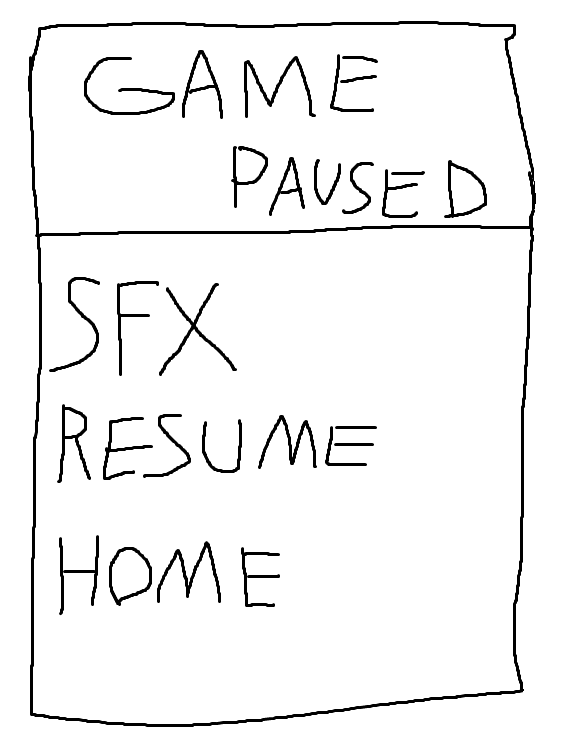 GAME
PAUSED
SFX
RESUME
HOME